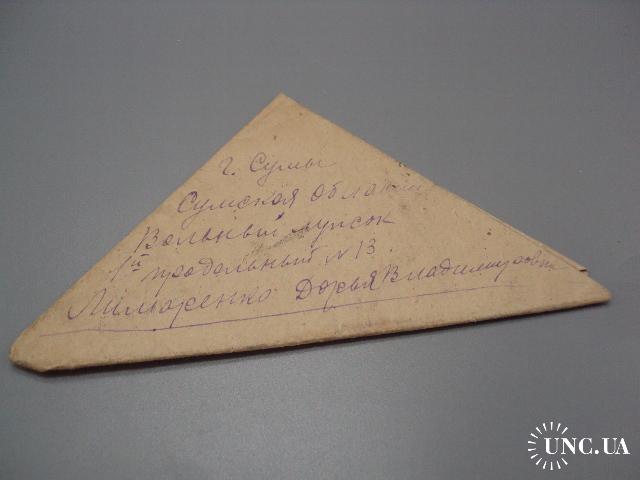 г. Сумы
Сумская область
Вольный лужок
1й продольный N 13.
Лимаренко Дарья Владимировн
UNC.UA